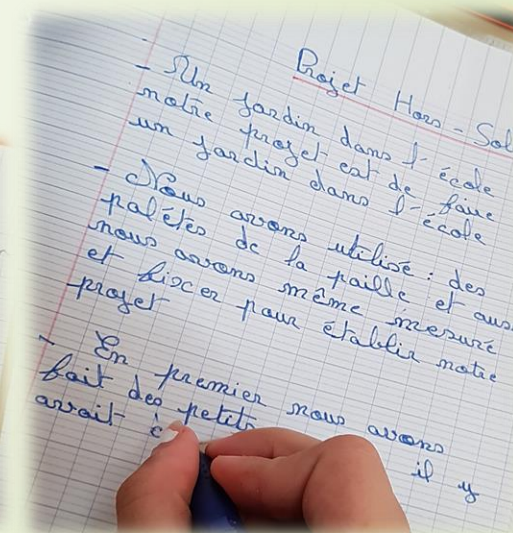 Projet Hors-Sol
- Un jardin dans l'école
notre projet est de faire
un jardin dans l'école
- Nous avons utilisé : des
palétes de la paille et aus
nous avons même mesuré
et fixer pour établir notre
projet
- En premier nous avons
fait des petits il y
avait